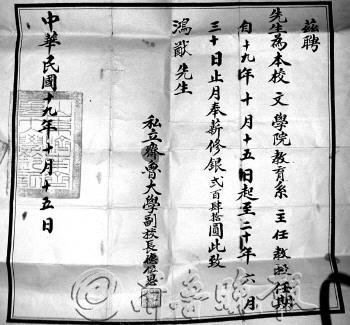 茲聘
先生為本校文學院教育系主任教授任期
自十九年十月十五日起至二十年六月
三十日止月奉薪修銀弍百肆拾圓此致
鴻猷先生
私立齊魯大學副校長
中華民國十九年十月十五日
齊魯晚報